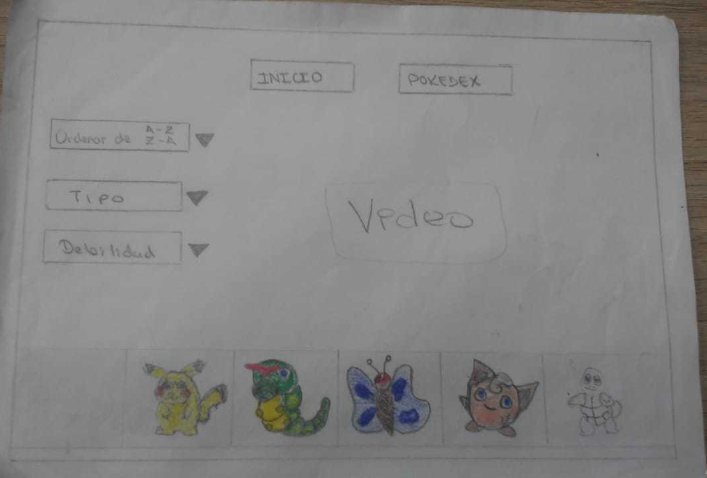 INICIO
POKEDEX
Ordenar de A-Z
Z-A
Tipo
Debilidad
Video